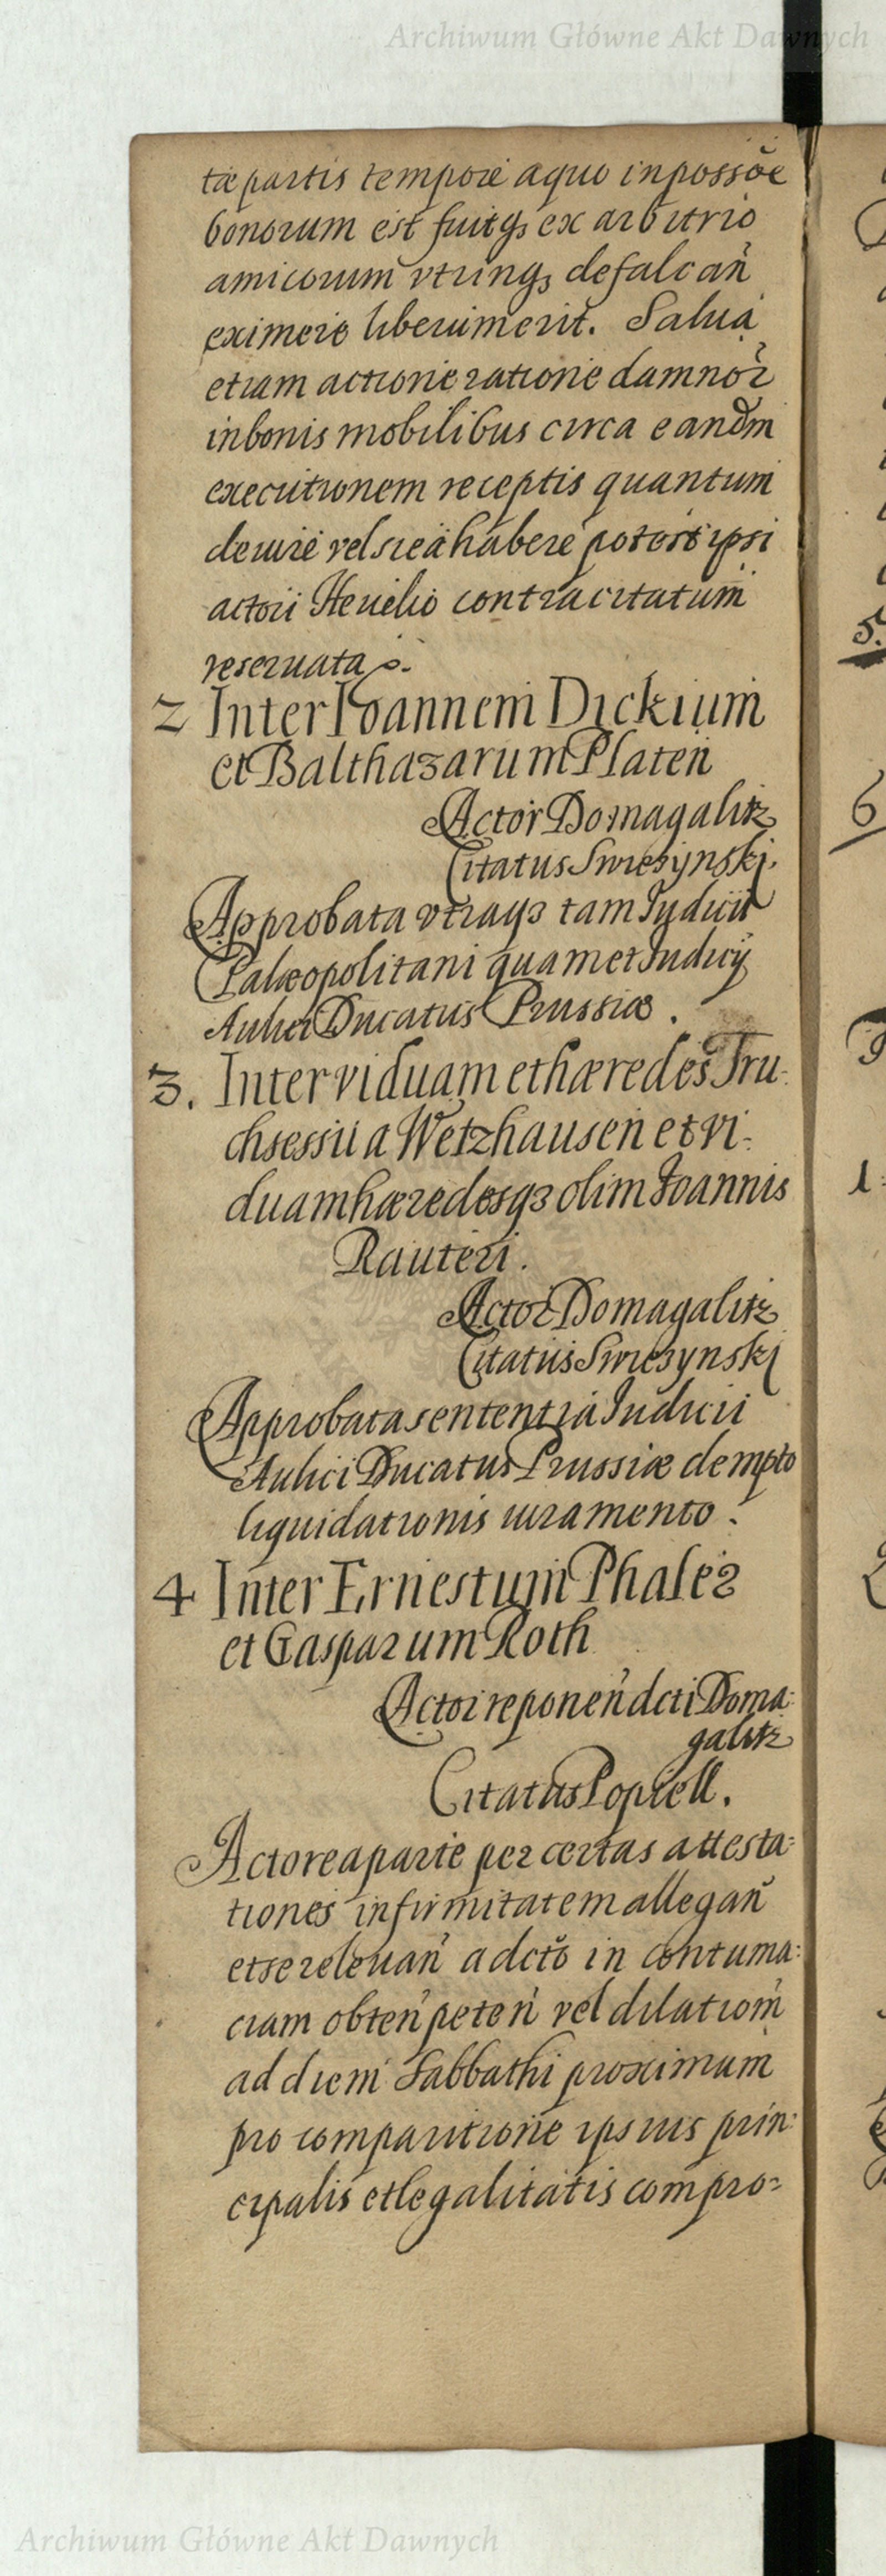 Archiwum Główne Akt Dawnych
tæ partis tempore a quo in possõe
bonorum est fuitq₃ ex arbitrio
amicorum vtrinq₃ defalcañ
eximere liberumerit. Salua
etiam actione ratione damnor̃
in bonis mobilibus circa eandm̃
executionem receptis quantum
deiure vel se eã habere poterit ipsi
actori Heuelio contra citatum
reseruata.
2 Inter Ioannem Dickium
et Balthazarum Platen
Actor Domagalitz
Citatus Swiesynski.
Approbata vtraq₃ tam Iudicii
Palæopolitani quam et Iudicÿ
Aulici Ducatus Prussiæ.
3. Inter viduam et hæredes Tru-
chsessii a Wetzhausen et vi-
duam hæredesq₃ olim Ioannis
Rauteri.
Actor Domagalitz
Citatus Swiesynski
Approbata sententia Iudicii
Aulici Ducatus Prussiæ dempto
liquidationis iuramento.
4 Inter Ernestum Phaler
et Gasparum Roth
Actor reponeñ dcti Doma-
galitz
Citatus Popiell.
Actorea parte per certas attesta-
tiones infirmitatem allegañ
et se releuañ a dctõ in contuma-
ciam obteñ peteñ vel dilatiom̃
ad diem Sabbathi proximum
pro comparitione ipsius prin-
cipalis et legalitatis compro-
5.
6
1
Archiwum Główne Akt Dawnych